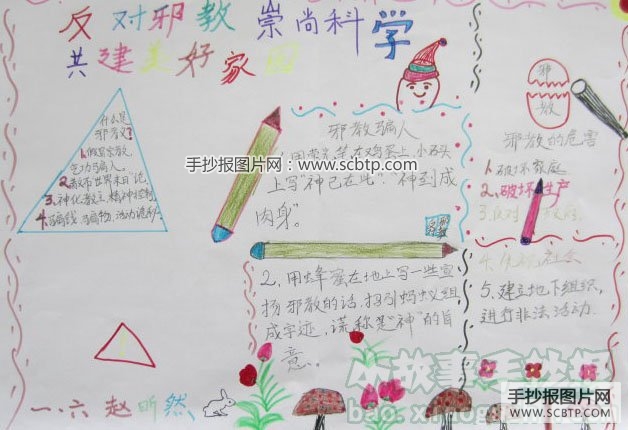 反对邪教 崇尚科学
共建美好家园
什么是
邪教?
1.假冒宗教,
气功骗人。
2.散布“世界末日”论
3.神化教主,精神控制
4.骗钱、骗物、活动诡秘
手抄报图片网:www.scbtp.com
邪教骗人
1.用荧光笔在鸡蛋上,小石头
上写“神已在此”、“神到成
肉身”。
2、用蜂蜜在地上写一些宣
扬邪教的话,招引蚂蚁组
成字迹,谎称是“神”的旨
意。
邪
教
邪教的危害
1.破坏家庭
2.破坏生产
3.反对政府
4.危害社会
5.建立地下组织,
进行非法活动.
一.六 赵昕然
手抄报图片网
WWW.SCBTP.COM